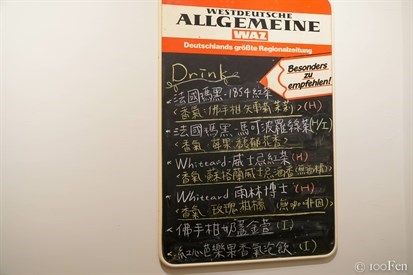 WESTDEUTSCHE
ALLGEMEINE
WAZ
Deutschlands größte Regionalzeitung
Besonders
zu
empfehlen!
Drink
法國瑪黑-1854紅茶
<香氣:佛手柑 茉莉> (H)
法國瑪黑-馬可波羅 (H/I)
<香氣:
Whittard-威士忌紅茶 (H)
<香氣:蘇格蘭威士忌酒香
Whittard 雨林博士 (H)
<香氣:玫瑰 柑橘
佛手柑奶蓋金萱 (I)
芭樂果香氣泡飲 (I)
© 100Fen